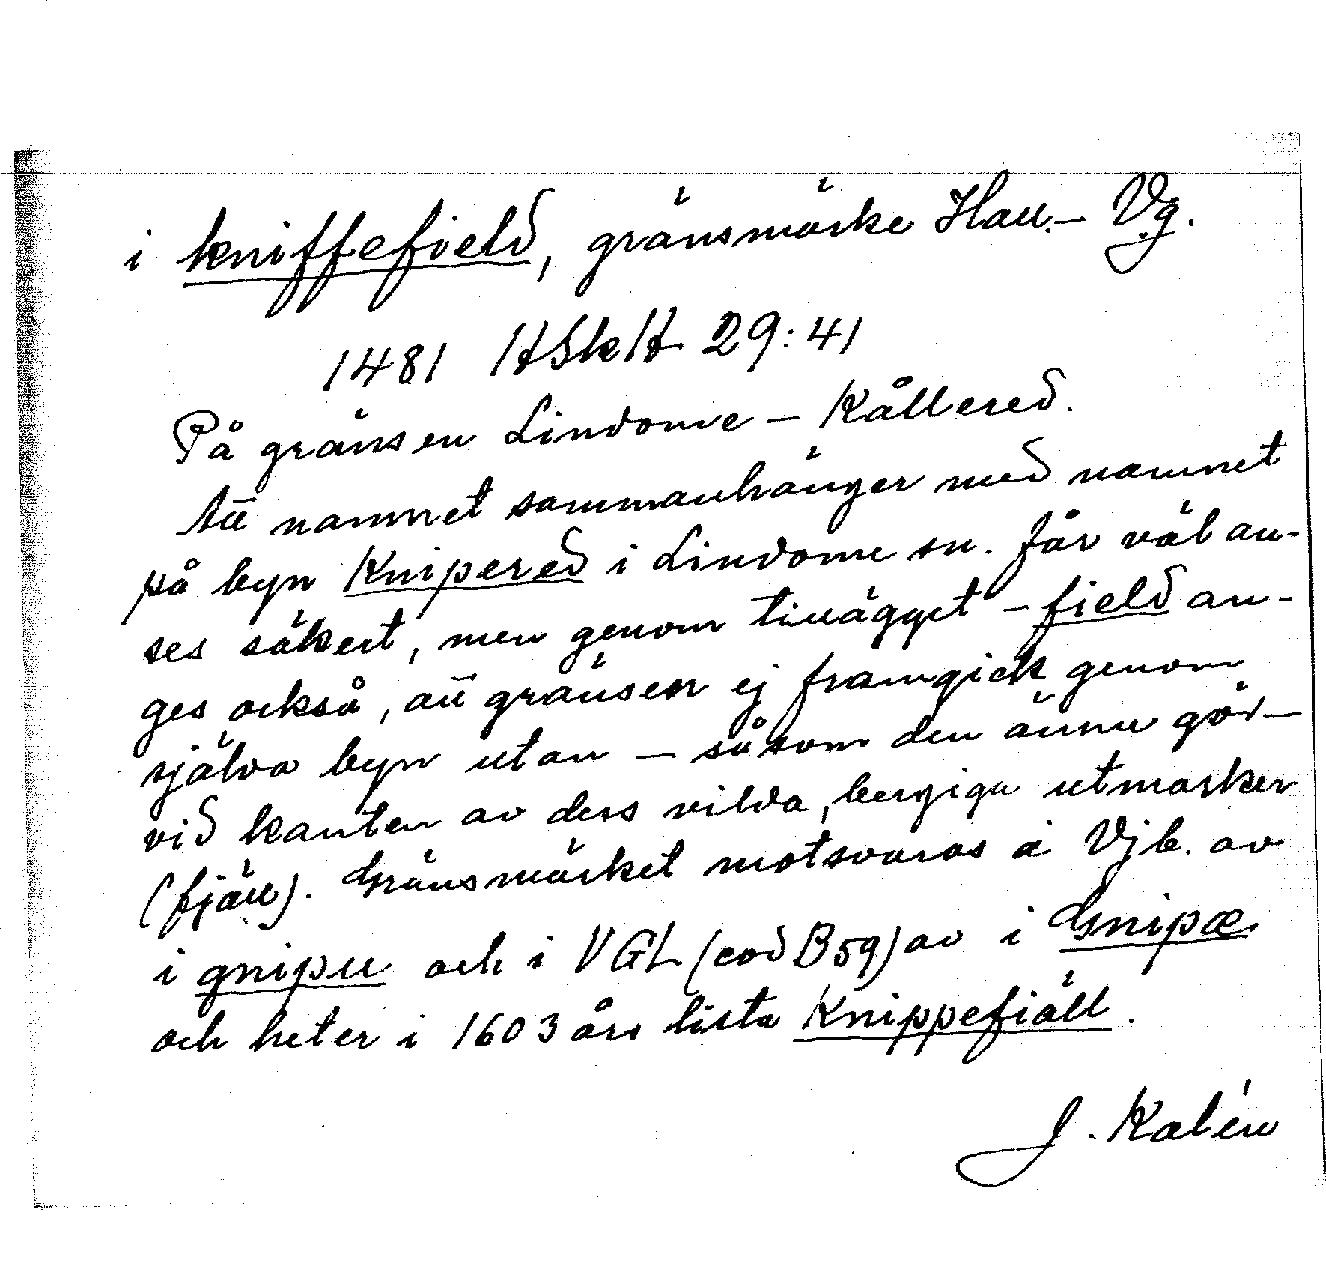 i kniffefield, gränsmärke Hall.– Vg.
1481 HSkH 29:41
På gränsen Lindome – Kållered.
Att namnet sammanhänger med namnet
på byn Knipered i Lindome sn. får väl an-
ses säkert, men genom tillägget -field an-
ges också, att gränsen ej framgick genom
själva byn utan – såsom den ännu gör –
vid kanten av dess vilda, bergiga utmarker
(fjäll). Gränsmärket motsvaras i Vjb. av
i gnipu och i VGL (cod B59) av i Gnipæ
och heter i 1603 års lista Knippefiäll.
J. Kalén